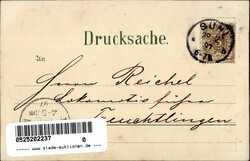 Drucksache.
An
Herrn Reichel
Lokomotivführer
Treuchtlingen
0525202237 0
www.slade-auktionen.de